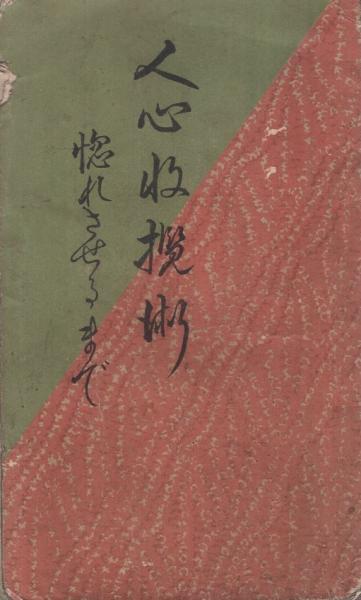 人心收攬術
惚れさせるまで